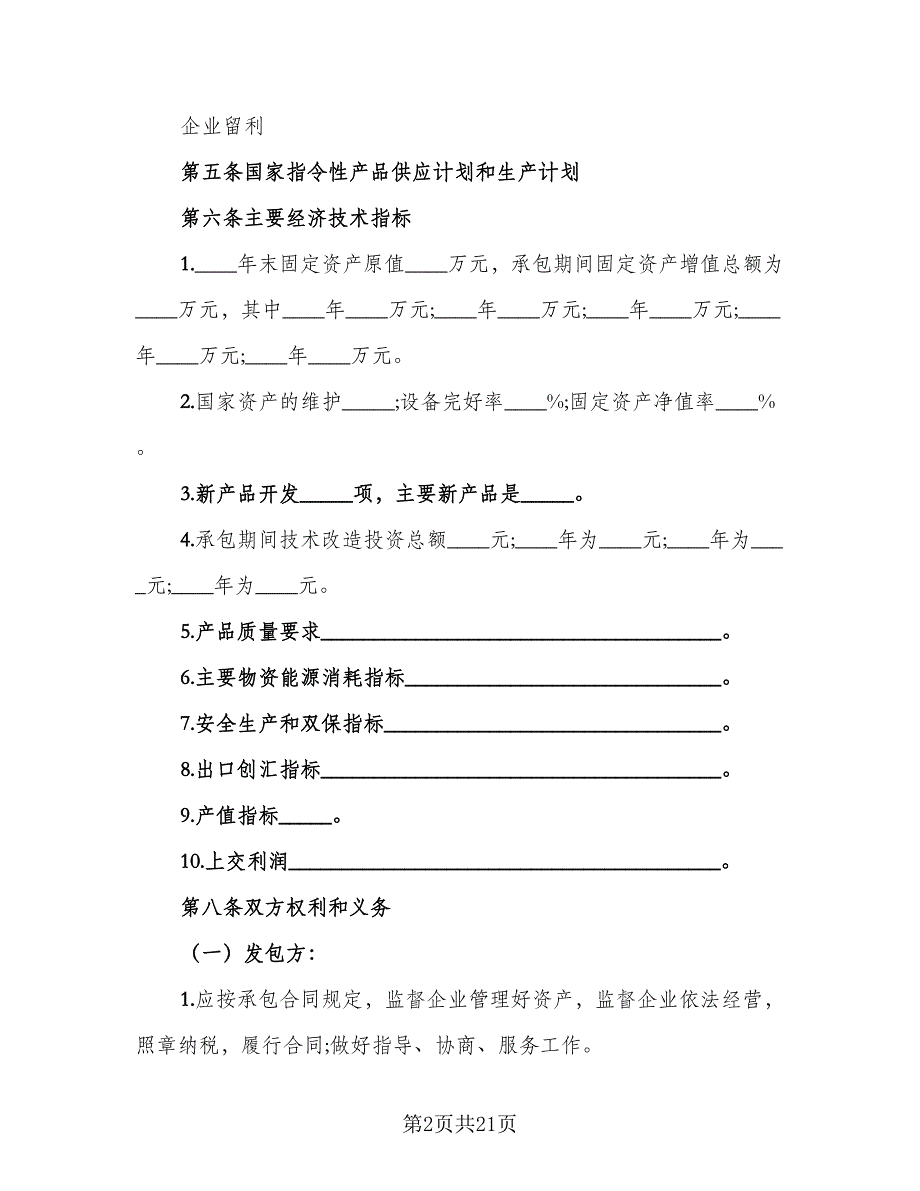 企业留利
第五条国家指令性产品供应计划和生产计划
第六条主要经济技术指标
1.____年末固定资产原值____万元，承包期间固定资产增值总额为
____万元，其中____年____万元;____年____万元;____年____万元;____
年____万元;____年____万元。
2.国家资产的维护_____;设备完好率____%;固定资产净值率____%
。
3.新产品开发_____项，主要新产品是_____。
4.承包期间技术改造投资总额____元;____年为____元;____年为___
_元;____年为____元。
5.产品质量要求______________________________________。
6.主要物资能源消耗指标______________________________。
7.安全生产和双保指标________________________________。
8.出口创汇指标______________________________________。
9.产值指标_____。
10.上交利润_________________________________________。
第八条双方权利和义务
（一）发包方：
1.应按承包合同规定，监督企业管理好资产，监督企业依法经营，
照章纳税，履行合同;做好指导、协商、服务工作。
第2页共21页